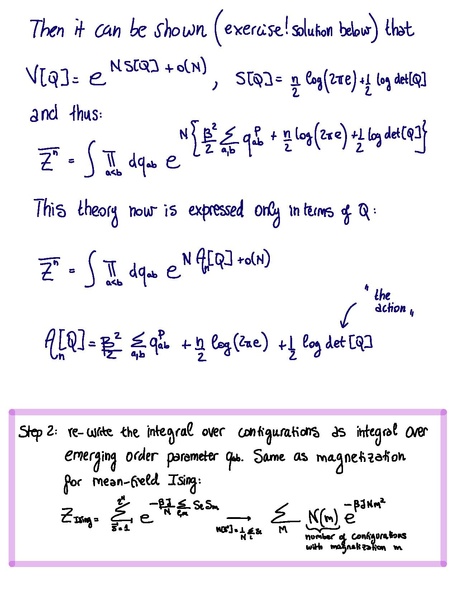 Then it can be shown (exercise! solution below) that
V[Q] = e^{N S[Q] + o(N)}, S[Q] = n/2 log(2πe) + 1/2 log det[Q]
and thus:
\overline{Z^n} = ∫ ∏_{a<b} dq_{ab} e^{N{β²/2 Σ_{a,b} q_{ab}^p + n/2 log(2πe) + 1/2 log det[Q]}}
This theory now is expressed only in terms of Q:
\overline{Z^n} = ∫ ∏_{a<b} dq_{ab} e^{N A_n[Q] + o(N)}
"the
action"
A_n[Q] = β²/2 Σ_{a,b} q_{ab}^p + n/2 log(2πe) + 1/2 log det[Q]
Step 2: re-write the integral over configurations as integral over
emerging order parameter q_{ab}. Same as magnetization
for mean-field Ising:
Z_{Ising} = Σ_{\vec{S}=1}^{2^N} e^{-βJ/N Σ_{l,m} S_l S_m} → Σ_M N(m) e^{-βJNm²}
number of configurations
with magnetization m